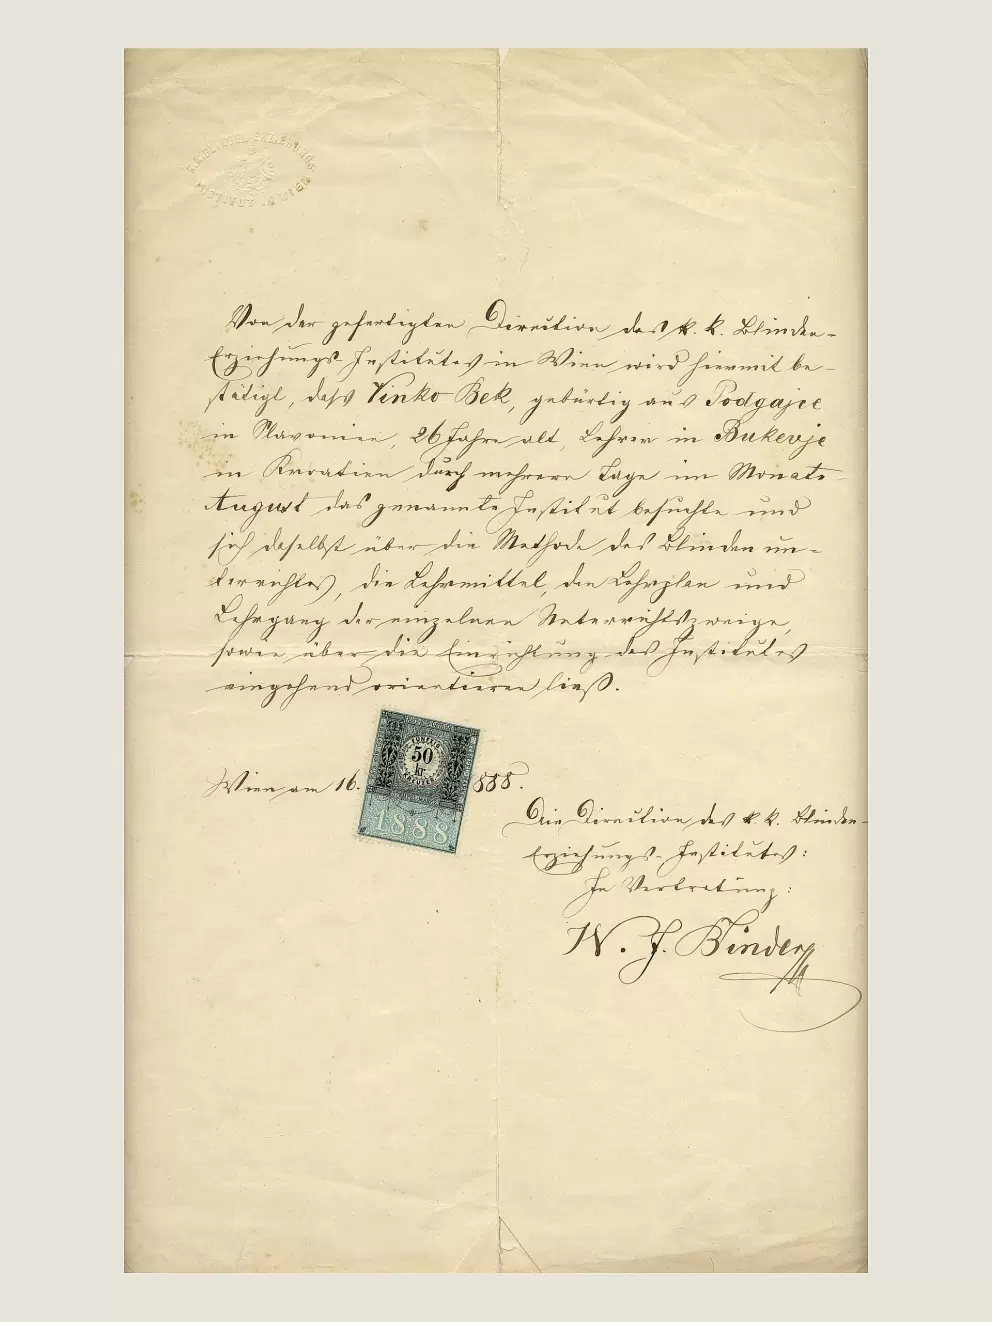 K.K. BLINDEN-ERZIEHUNGS
INSTITUT IN WIEN
Von der gefertigten Direction des k. k. Blinden-
Erziehungs-Institutes in Wien wird hiermit be-
stätigt, daß Vinko Bek, gebürtig aus Podgajie
in Slavonien, 26 Jahre alt, Lehrer in Bukevje
in Kroatien durch mehrere Tage im Monate
August das genannte Institut besuchte und
sich daselbst über die Methode des Blindenun-
terrichtes, die Lehrmittel, den Lehrplan und
Lehrgang der einzelnen Unterrichtszweige,
sowie über die Einrichtung des Institutes
eingehend orientieren ließ.
FÜNFZIG
50
kr
KREUZER
Wien am 16. 888.
1888
Die Direction des k. k. Blinden-
Erziehungs-Institutes:
In Vertretung:
W. J. Binder